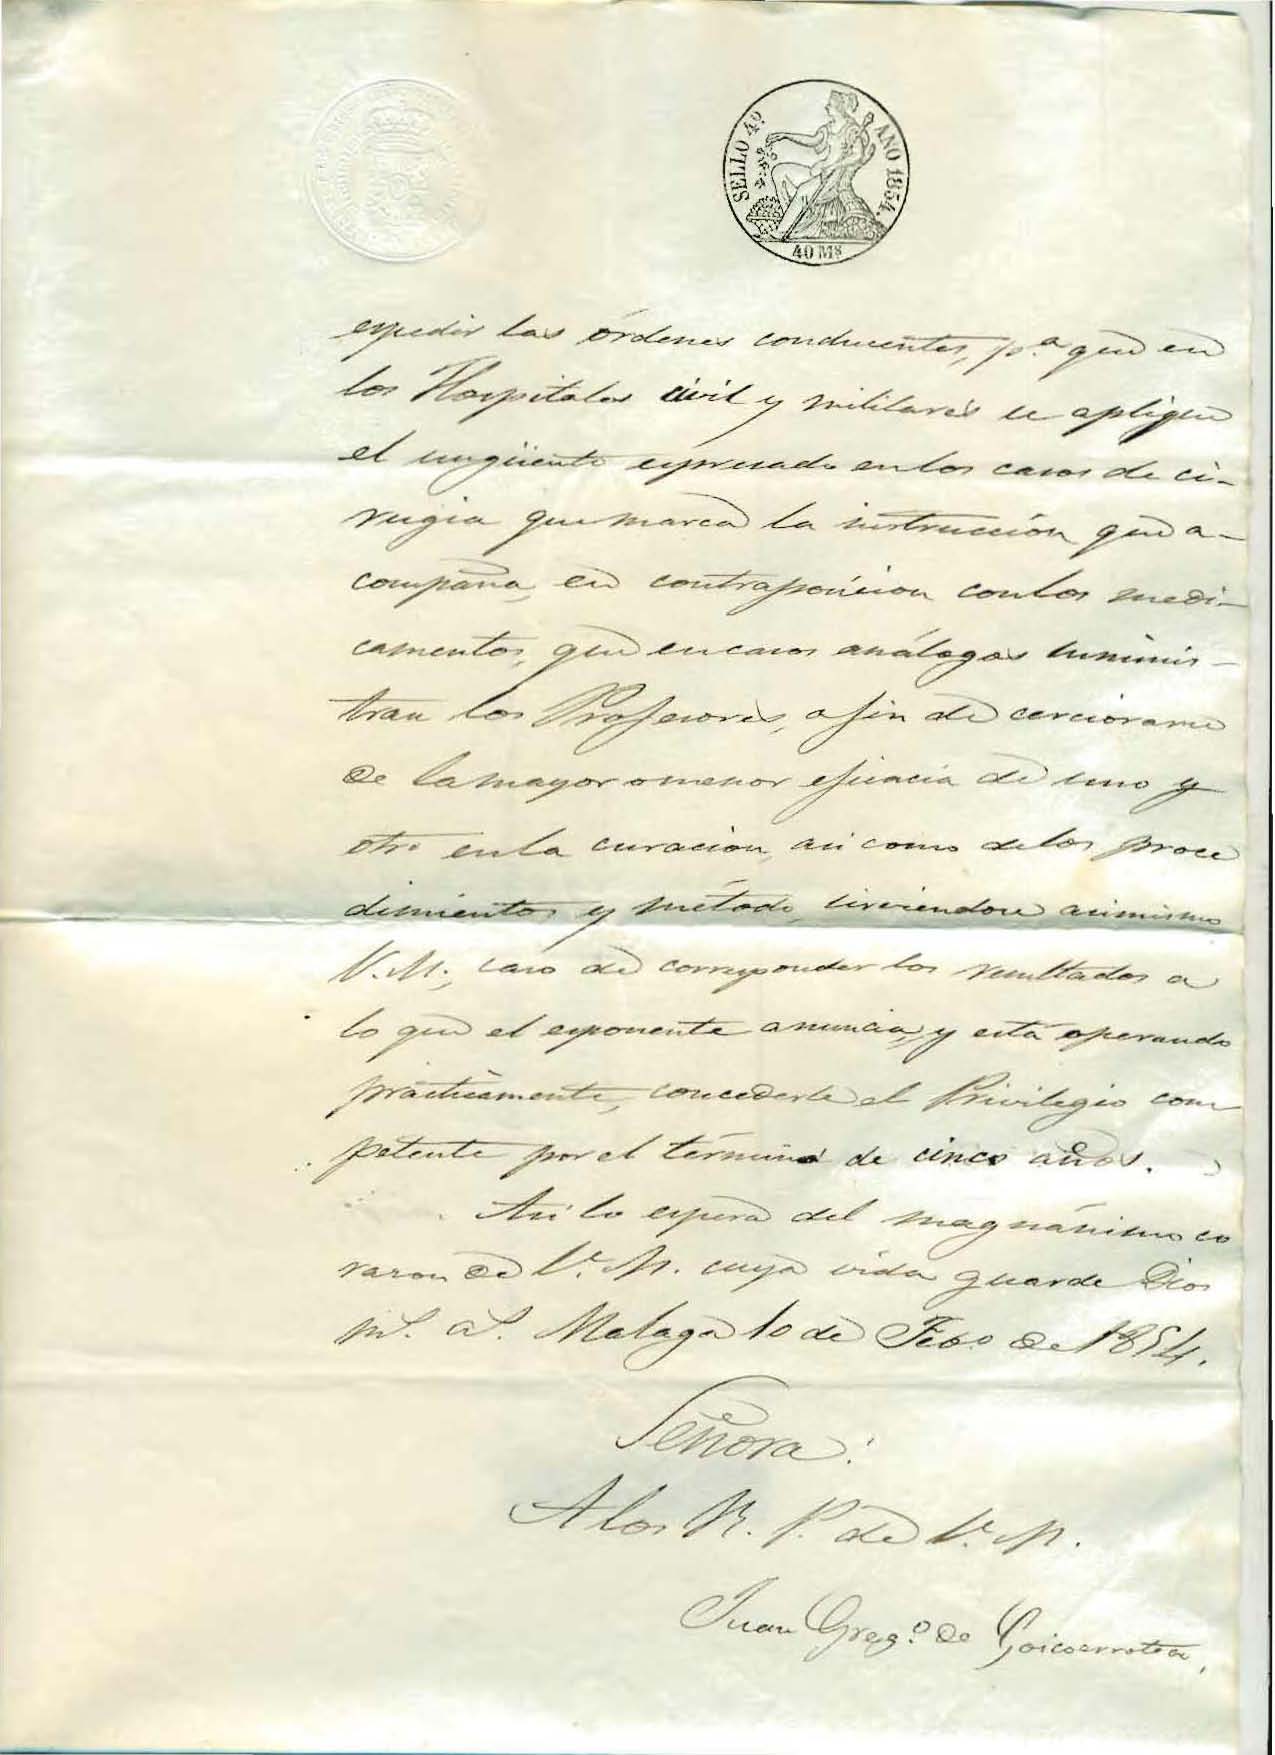 SELLO 4º AÑO 1854.
40 Ms
espedir las órdenes conducentes, pª que en
los Hospitales civil y militares se aplique
el ungüento espresado en los casos de ci-
rugia que marca la instruccion que a-
compaña, en contraposicion con los medi-
camentos, que en casos análogos suminis-
tran los Profesores, a fin de cerciorarse
de la mayor o menor eficacia de uno y
otro en la curacion, asi como de los proce
dimientos y método, sirviendose asimismo
V. M., caso de corresponder los resultados a
lo que el esponente anuncia, y está operando
practicamente, concederle el Privilegio com
petente por el término de cinco años.
Asi lo espera del magnánimo co
razon de V. M. cuya vida guarde Dios
ms. as. Malaga 10 de Febº de 1854.
Señora:
A los R. P. de V. M.
Juan Gregº de Goicoerrotea,